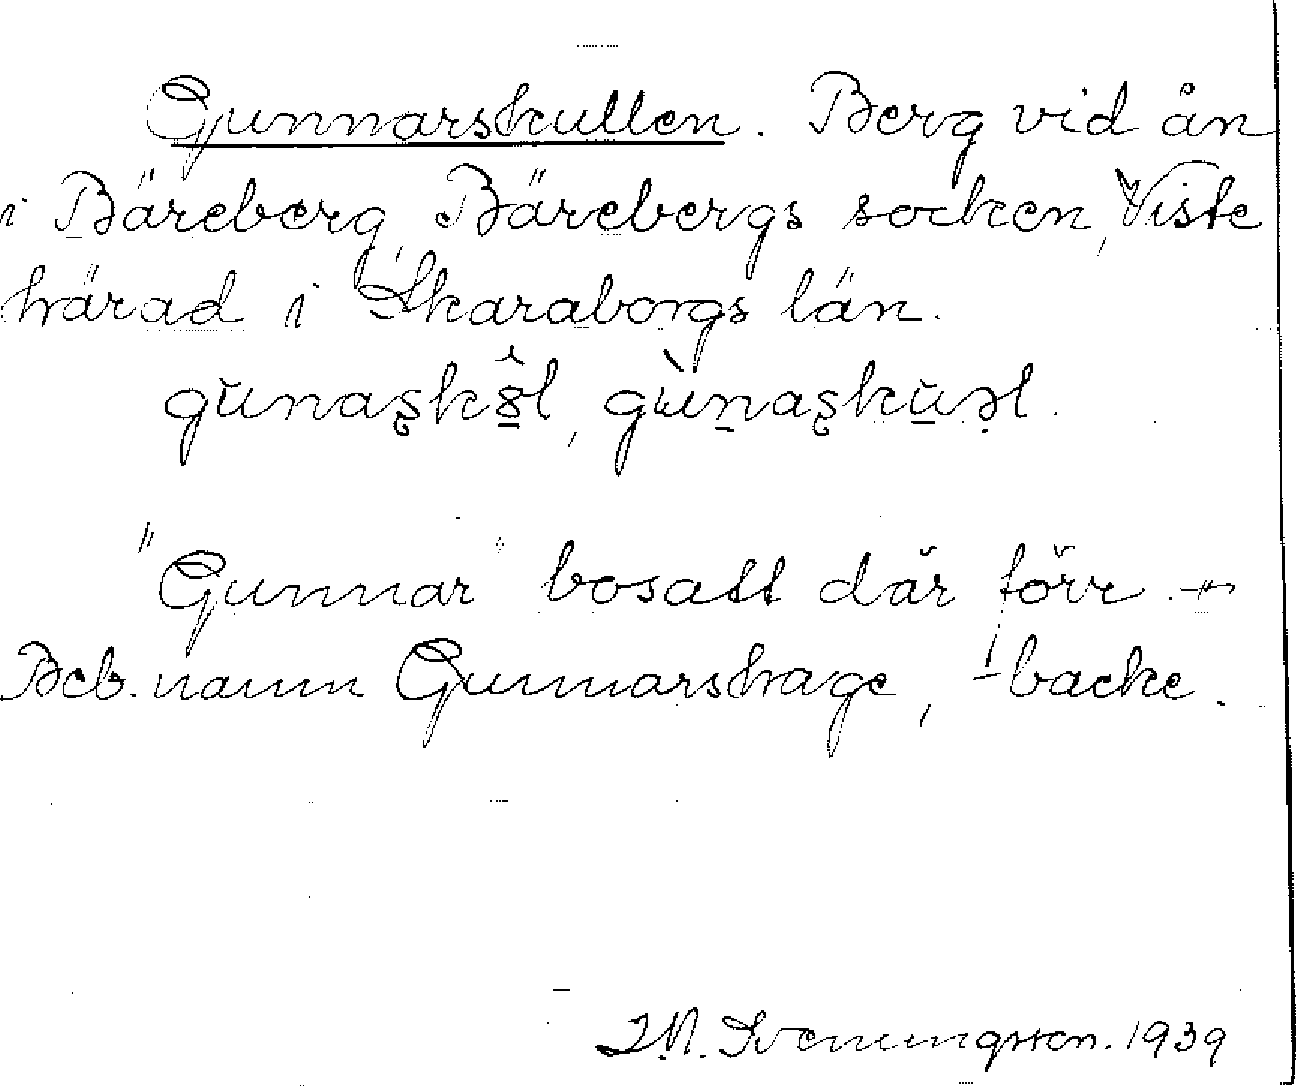 Gunnarskullen. Berg vid ån
i Bäreberg, Bärebergs socken, Viste
härad i Skaraborgs län.
"Gunnar" bosatt där förr.
Beb.namn Gunnarshage, -backe.
Svenningsson. 1939